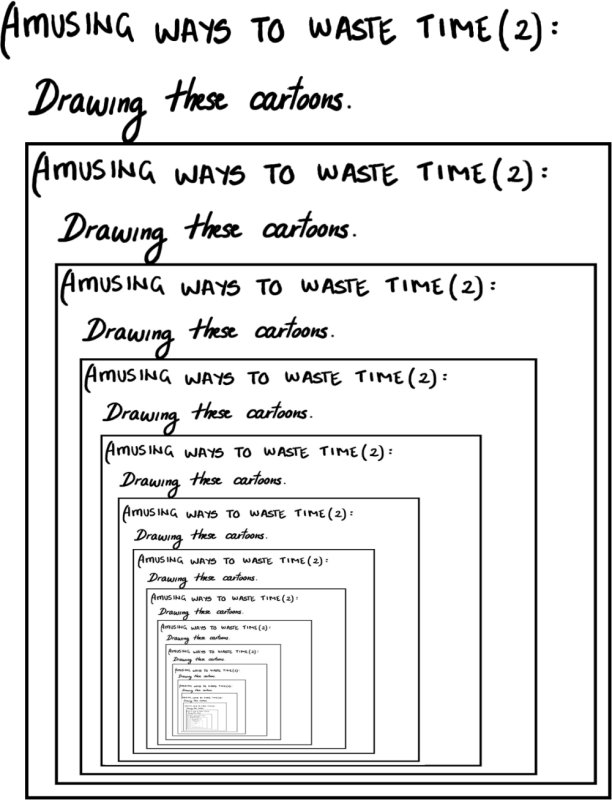 AMUSING WAYS TO WASTE TIME (2):
Drawing these cartoons.
AMUSING WAYS TO WASTE TIME (2):
Drawing these cartoons.
AMUSING WAYS TO WASTE TIME (2):
Drawing these cartoons.
AMUSING WAYS TO WASTE TIME (2):
Drawing these cartoons.
AMUSING WAYS TO WASTE TIME (2):
Drawing these cartoons.
AMUSING WAYS TO WASTE TIME (2):
Drawing these cartoons.
AMUSING WAYS TO WASTE TIME (2):
Drawing these cartoons.
AMUSING WAYS TO WASTE TIME (2):
Drawing these cartoons.
AMUSING WAYS TO WASTE TIME (2):
Drawing these cartoons.
AMUSING WAYS TO WASTE TIME (2):
Drawing these cartoons.
AMUSING WAYS TO WASTE TIME (2):
Drawing these cartoons.